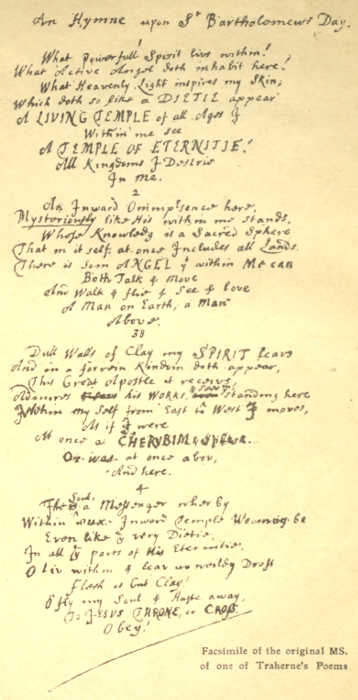 An Hymne upon St Bartholomews Day.
What Powerfull Spirit livs within!
What Active Angel doth inhabit here!
What Heavenly Light inspires my Skin,
Which doth so like a DIETIE appear
A LIVING TEMPLE of all Ages I
Within me see
A TEMPLE OF ETERNITIE!
All Kingdoms I Descrie
In me.
2
An Inward Omnipresence here,
Mysteriously like His within me stands,
Whose Knowledg is a Sacred Sphere
That in it self at once Includes all Lands.
There is som ANGEL yt within Me can
Both Talk & Move
And Walk & flie & See & Love
A Man on Earth, a Man
Above.
3
Dull Walls of Clay my SPIRIT leavs
And in a forrein Kindom doth appear,
This Great Apostle it receivs,
Admires his Works & sees him standing here
Within my Self from East to West I moves,
As if I were
At once a CHERUBIM & Sphere.
Or was at once abov,
And here.
4
The Soul's a Messenger wherby
Within our Inward Temple We may be
Even like ye very Dietie,
In all ye parts of His Eternitie.
O liv within & leav unweildy Dross
Flesh is but Clay!
O fly my Soul & Haste away,
To JESUS THRONE, or CROSS,
Obey!
Facsimile of the original MS.
of one of Traherne's Poems